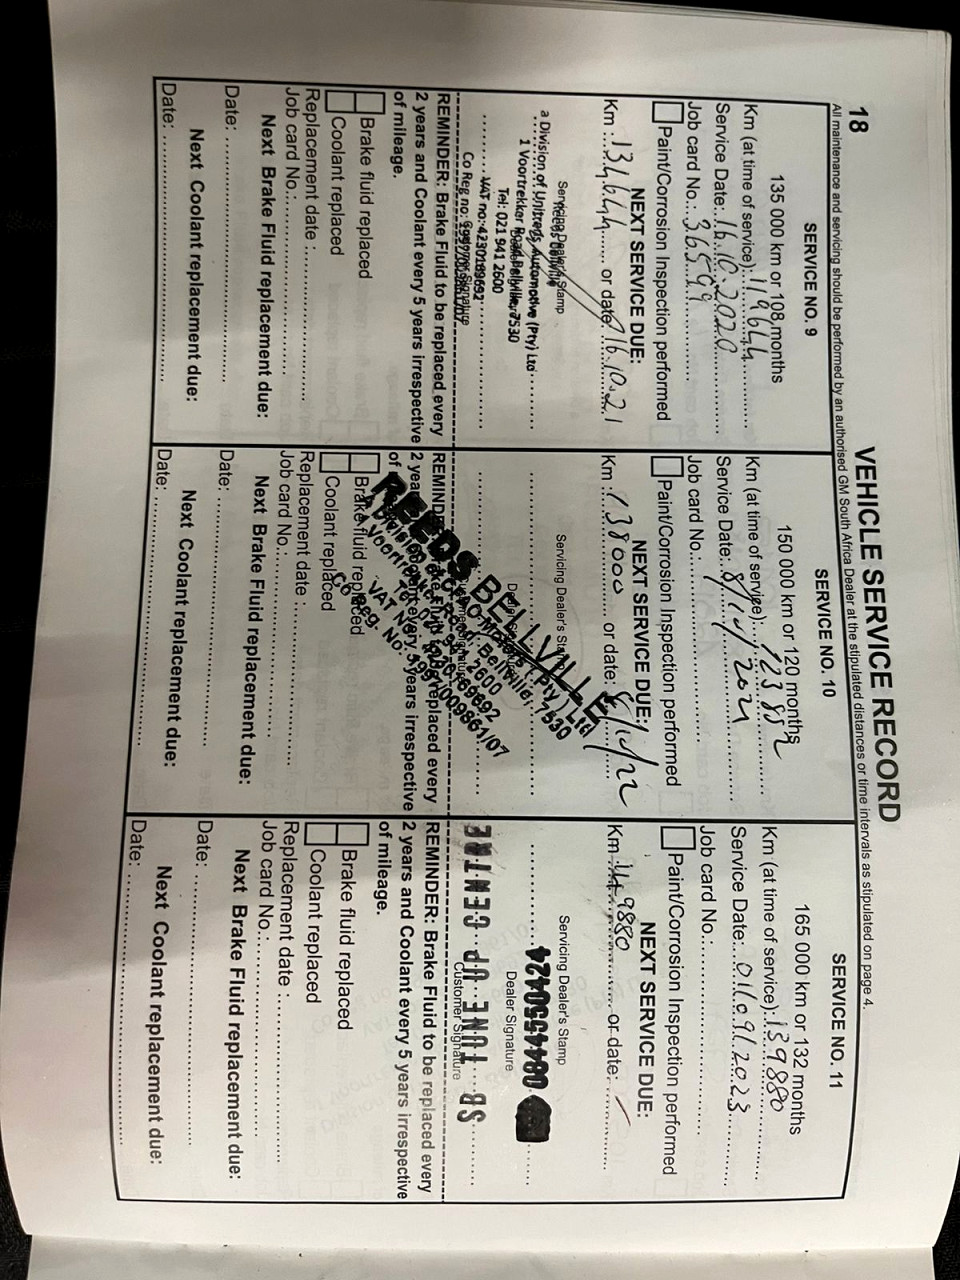 18
VEHICLE SERVICE RECORD
All maintenance and servicing should be performed by an authorised GM South Africa Dealer at the stipulated distances or time intervals as stipulated on page 4.
SERVICE NO. 9
135 000 km or 108 months
Km (at time of service): 119644
Service Date: 16.10.2020
Job card No.: 36599
Paint/Corrosion Inspection performed
NEXT SERVICE DUE:
Km : 134644 or date: 16.10.21
Servicing Dealer's Stamp
Reeds Bellville
a Division of Unitrans Automotive (Pty) Ltd
1 Voortrekker Road, Bellville, 7530
Tel: 021 941 2600
VAT no: 4230169692
Co Reg no:
REMINDER: Brake Fluid to be replaced every
2 years and Coolant every 5 years irrespective
of mileage.
Brake fluid replaced
Coolant replaced
Replacement date :
Job card No.:
Next Brake Fluid replacement due:
Date:
Next Coolant replacement due:
Date:
SERVICE NO. 10
150 000 km or 120 months
Km (at time of service): 123852
Service Date: 8/10/2021
Job card No.:
Paint/Corrosion Inspection performed
NEXT SERVICE DUE:
Km : 138000 or date: 8/10/22
Servicing Dealer's Stamp
REEDS BELLVILLE
Voortrekker Road, Bellville, 7530
Tel: 021 941 2600
VAT No. 4230169692
Co. Reg. No. 1997/009861/07
Brake fluid replaced
Coolant replaced
Replacement date :
Job card No.:
Next Brake Fluid replacement due:
Date:
Next Coolant replacement due:
Date:
SERVICE NO. 11
165 000 km or 132 months
Km (at time of service): 139880
Service Date: 01/09/2023
Job card No.:
Paint/Corrosion Inspection performed
NEXT SERVICE DUE:
Km 149880 or date:
Servicing Dealer's Stamp
0844550424
Dealer Signature
SB TUNE UP CENTRE
Customer Signature
REMINDER: Brake Fluid to be replaced every
2 years and Coolant every 5 years irrespective
of mileage.
Brake fluid replaced
Coolant replaced
Replacement date :
Job card No.:
Next Brake Fluid replacement due:
Date:
Next Coolant replacement due:
Date: